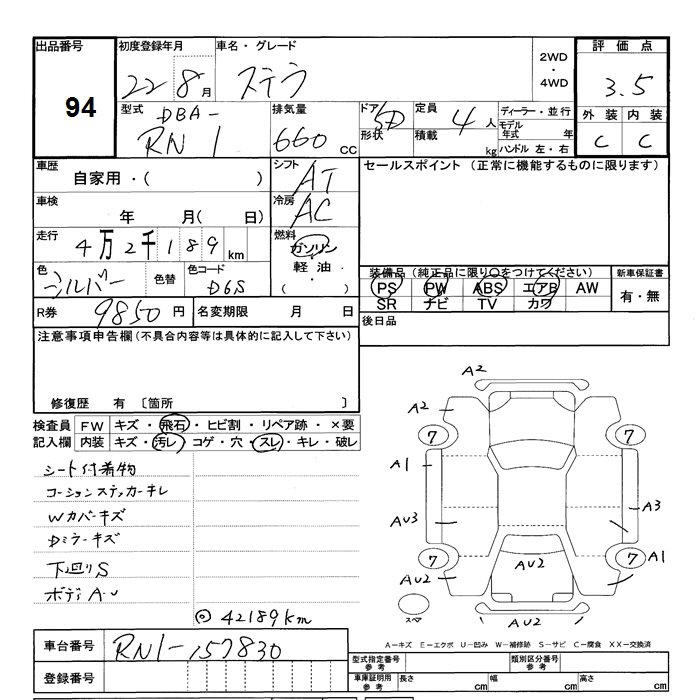 出品番号 初度登録年月 車名・グレード 評価点
94 22 8月 ステラ 2WD・4WD 3.5
型式 DBA- RN1 排気量 660 CC ドア 5D 形状 定員 4人 積載 kg ディーラー・並行 モデル年式 年 ハンドル 左・右 外装 内装
C C
車歴 自家用・( ) シフト AT セールスポイント (正常に機能するものに限ります)
車検 年 月( 日) 冷房 AC
走行 4万2千189km 燃料 ガソリン 軽油・( )
色 シルバー 色替 色コード D6S
装備品 (純正品に限り○をつけてください) 新車保証書
PS PW ABS エアB AW 有・無
SR ナビ TV カワ
R券 9850円 名変期限 月 日 後日品
注意事項申告欄(不具合内容等は具体的に記入して下さい)
修復歴 有 〔箇所 〕
検査員 FW キズ・飛石・ヒビ割・リペア跡・×要
記入欄 内装 キズ・汚レ・コゲ・穴・スレ・キレ・破レ
シート付着物
コーションステッカーキレ
Wカバーキズ
Dミラーキズ
下廻りS
ボディA-U
◎42189km
A2
A2
7 7
A1
A3
AU3
7 7
A1
AU2
AU2
スペア
AU2
A-キズ E-エクボ U-凹み W-補修跡 S-サビ C-腐食 XX-交換済
車台番号 RN1-157830
型式指定番号 参考 類別区分番号 参考
登録番号
車庫証明用 参考 長さ cm 幅 cm 高さ cm